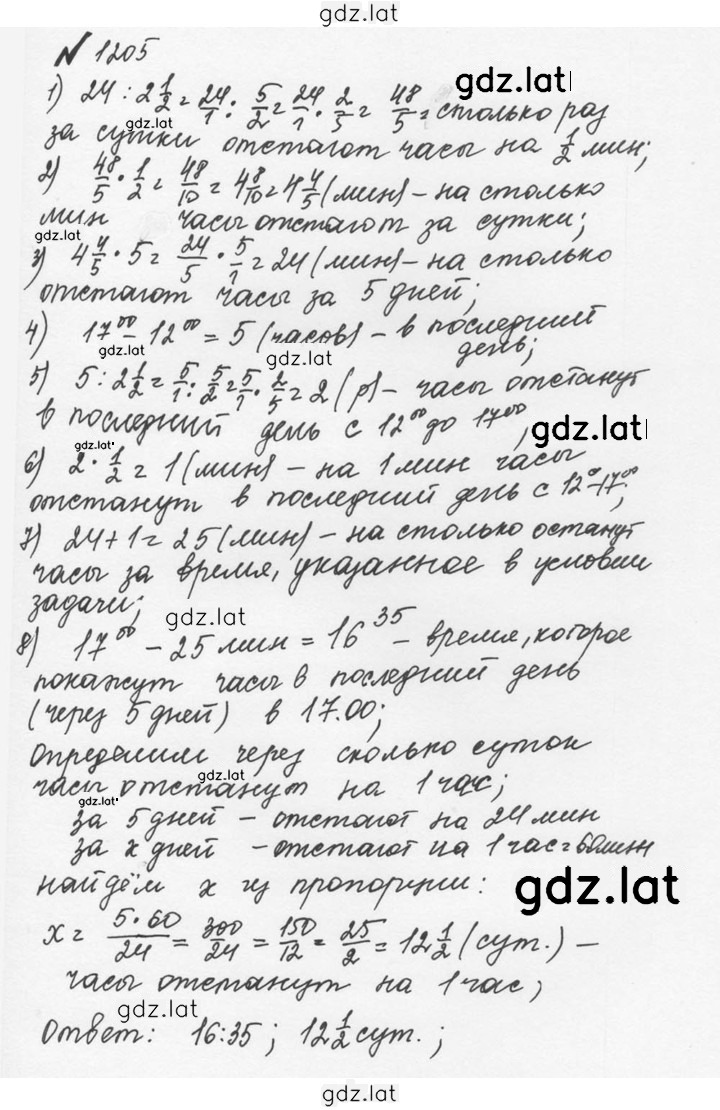 gdz.lat
№ 1205
1) 24 : 2 1/2 = 24/1 : 5/2 = 24/1 · 2/5 = 48/5 = столько раз
за сутки отстают часы на 1/2 мин;
2) 48/5 · 1/2 = 48/10 = 4 8/10 = 4 4/5 (мин) – на столько
мин часы отстают за сутки;
3) 4 4/5 · 5 = 24/5 · 5/1 = 24 (мин) – на столько
отстают часы за 5 дней;
4) 17⁰⁰ – 12⁰⁰ = 5 (часов) – в последний
день;
5) 5 : 2 1/2 = 5/1 : 5/2 = 5/1 · 2/5 = 2 (р) – часы отстанут
в последний день с 12⁰⁰ до 17⁰⁰;
6) 2 · 1/2 = 1 (мин) – на 1 мин часы
отстанут в последний день с 12⁰–17⁰⁰;
7) 24 + 1 = 25 (мин) – на столько останут
часы за время, указанное в условии
задачи;
8) 17⁰⁰ – 25 мин = 16³⁵ – время, которое
покажут часы в последний день
(через 5 дней) в 17.00;
определим через сколько суток
часы отстанут на 1 час;
за 5 дней – отстают на 24 мин
за х дней – отстают на 1 час = 60 мин
найдём х из пропорции:
х = 5·60/24 = 300/24 = 150/12 = 25/2 = 12 1/2 (сут.) –
часы отстанут на 1 час;
Ответ: 16:35; 12 1/2 сут.;
gdz.lat
gdz.lat
gdz.lat
gdz.lat
gdz.lat
gdz.lat
gdz.lat
gdz.lat
gdz.lat
gdz.lat
gdz.lat
gdz.lat
gdz.lat
gdz.lat